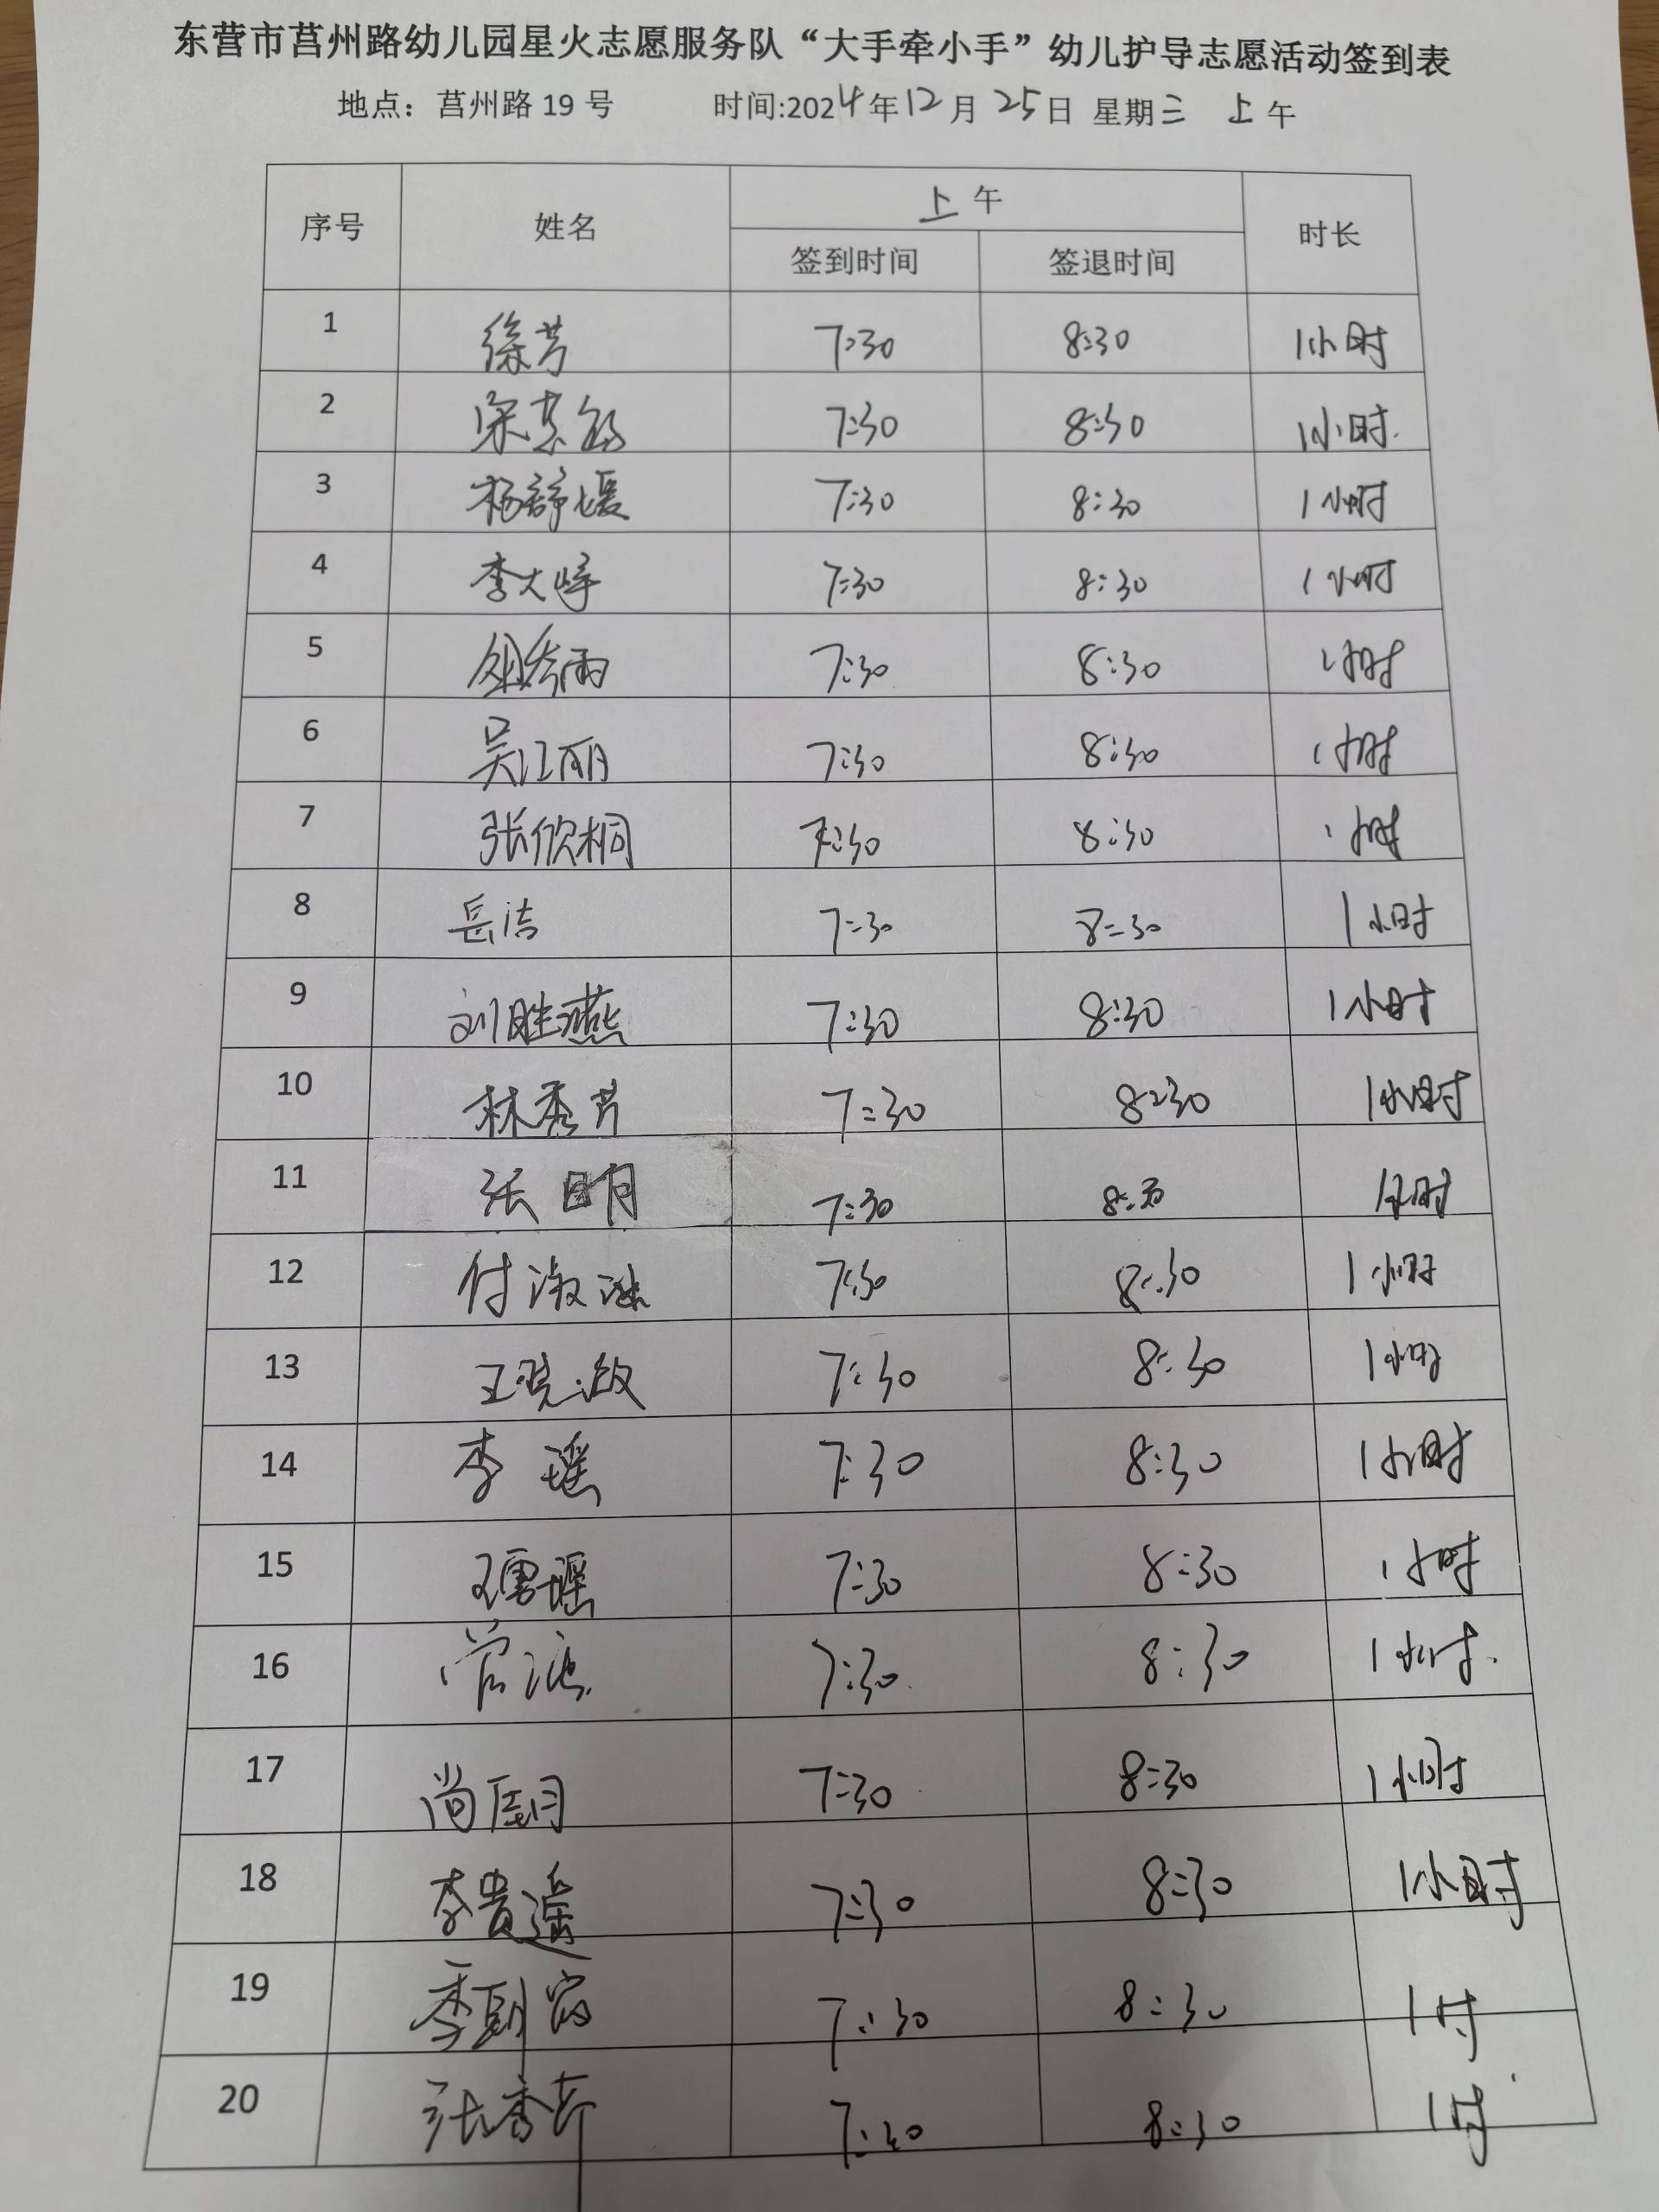 东营市莒州路幼儿园星火志愿服务队“大手牵小手”幼儿护导志愿活动签到表
地点：莒州路 19 号 时间:2024年12月25日 星期三 上午
序号 姓名 上午 时长
签到时间 签退时间
1 徐芳 7:30 8:30 1小时
2 7:30 8:30 1小时.
3 杨静媛 7:30 8:30 1小时
4 李大峰 7:30 8:30 1小时
5 7:30 8:30 1小时
6 吴江丽 7:30 8:30 1小时
7 张欣桐 7:30 8:30 1小时
8 岳洁 7:30 8:30 1小时
9 刘胜燕 7:30 8:30 1小时
10 林秀芳 7:30 8:30 1小时
11 张明 7:30 8:30 1小时
12 付淑 7:30 8:30 1小时
13 王晓敏 7:30 8:30 1小时
14 李瑶 7:30 8:30 1小时
15 王雪瑶 7:30 8:30 1小时
16 7:30 8:30 1小时.
17 尚 7:30 8:30 1小时
18 李贵遥 7:30 8:30 1小时
19 7:30 8:30 1时
20 张秀 7:30 8:30 1时